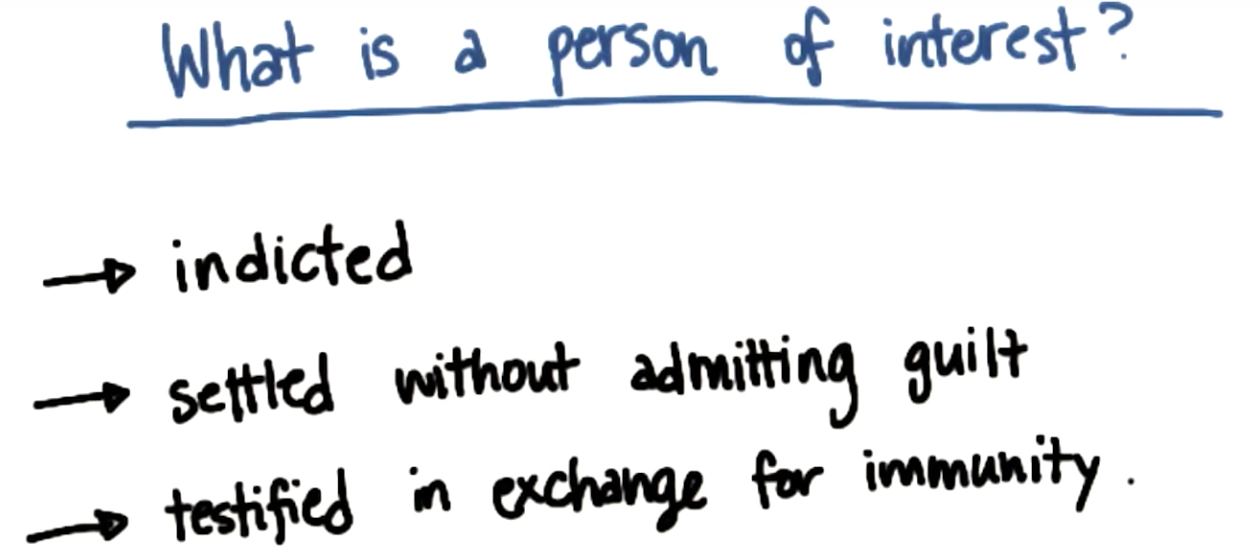 What is a person of interest?
→ indicted
→ settled without admitting guilt
→ testified in exchange for immunity.